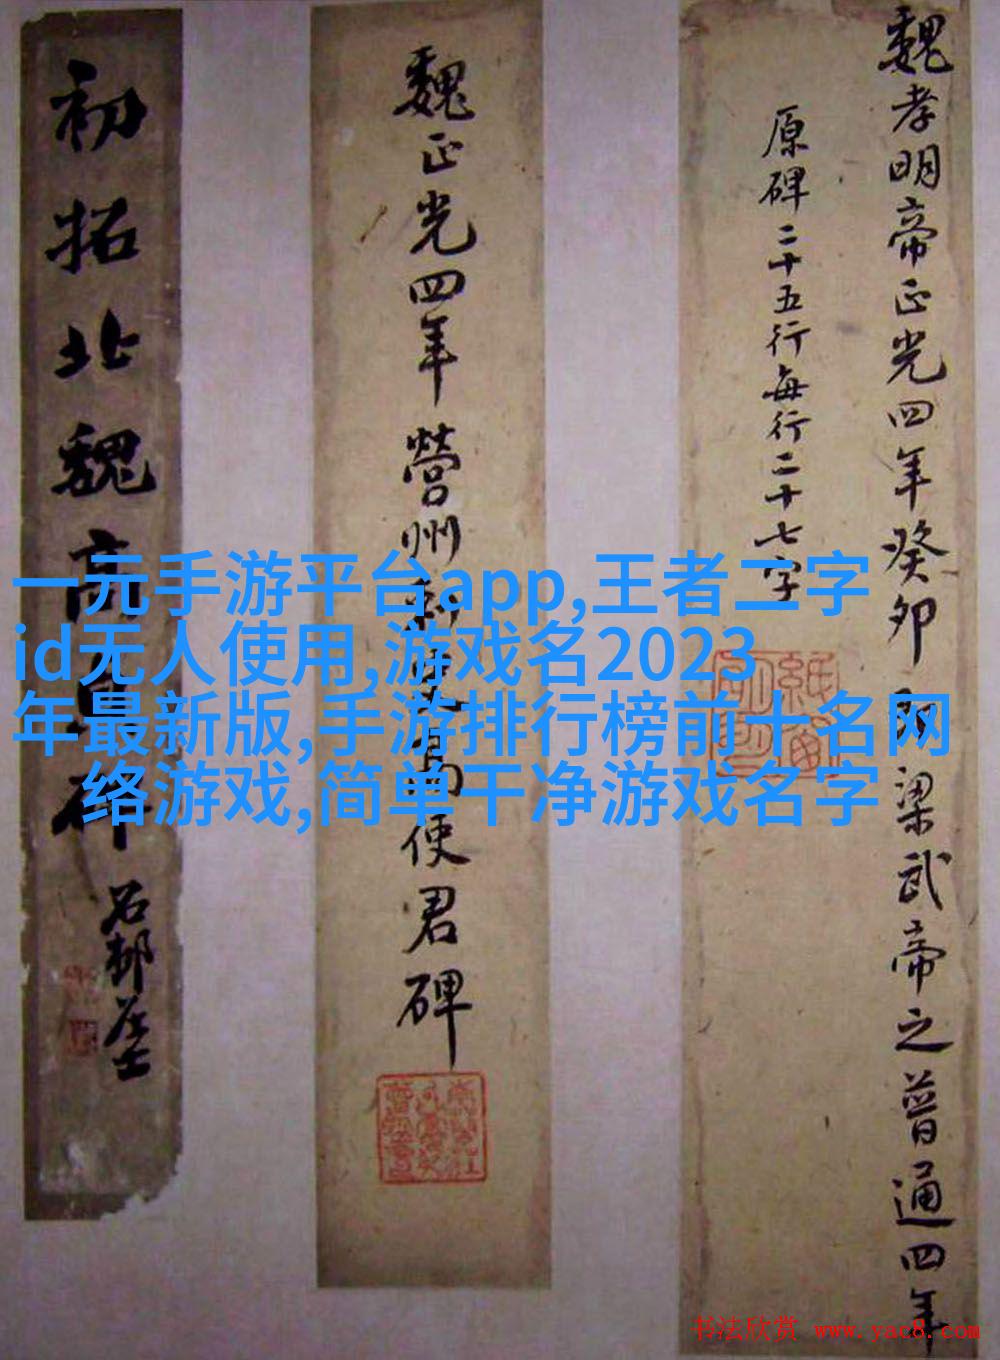 魏孝明帝正光四年癸卯即梁武帝之普通四年
原碑二十五行每行二十七字
魏正光四年營州刺史高使君碑
初拓北魏高碑
一元手游平台app,王者二字
id无人使用,游戏名2023
年最新版,手游排行榜前十名网
络游戏,简单干净游戏名字
书法欣赏 www.yac8.com